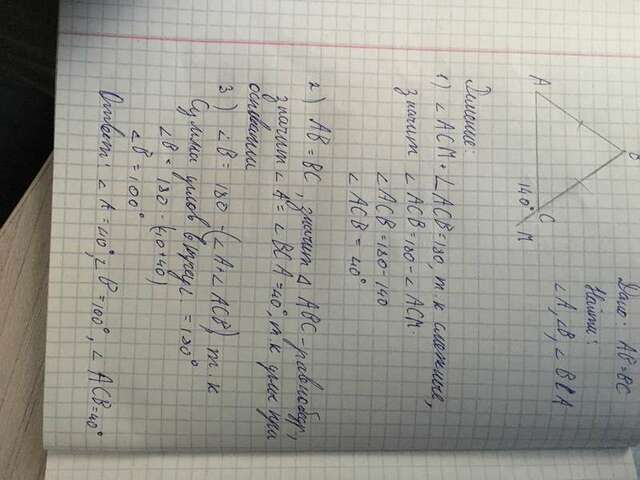 Дано: AB=BC
Найти:
∠A, ∠B, ∠BCA
B
A
C
M
140°
Решение:
1) ∠ACM+∠ACB=180, т.к смежные,
значит ∠ACB=180-∠ACM.
∠ACB=180-140
∠ACB=40°
2) AB=BC, значит △ABC-равнобедр,
значит ∠A=∠BCA=40°, т.к углы при
основании
3) ∠B= 180-(∠A+∠ACB), т.к
Сумма углов в треуг. =180°
∠B=180-(40+40)
∠B=100°
Ответ: ∠A=40°, ∠B=100°, ∠ACB=40°